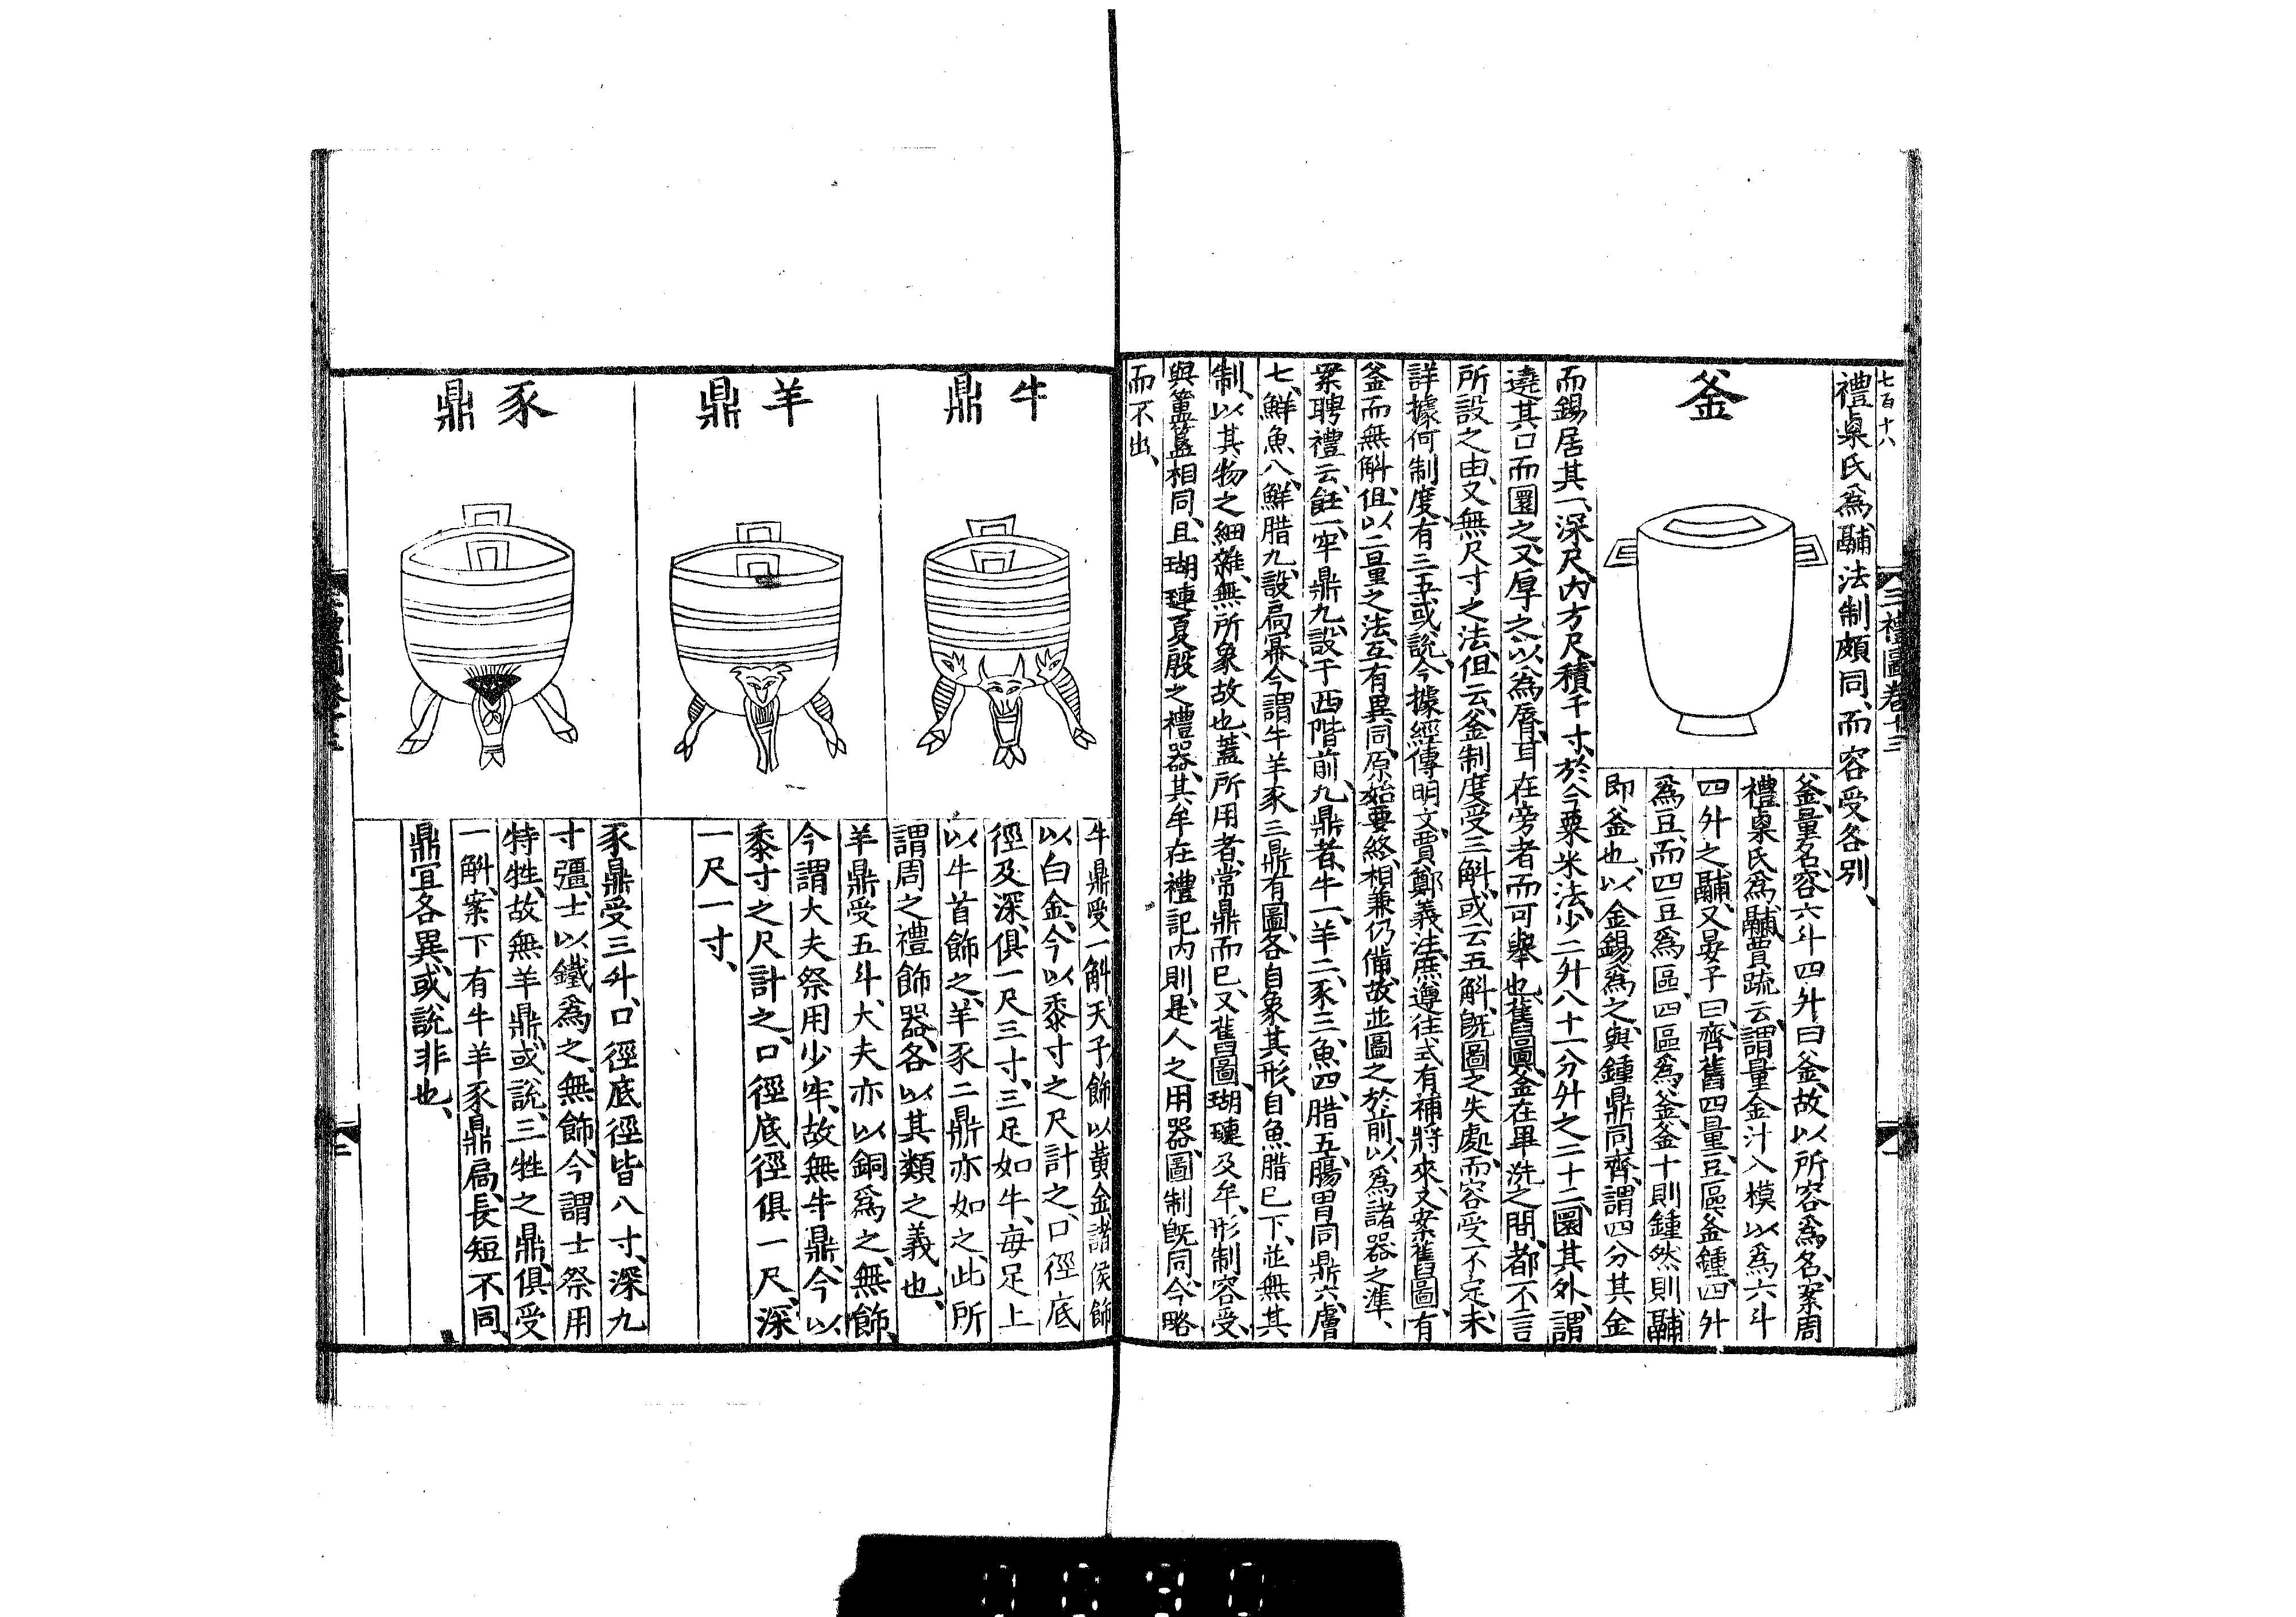 七百十八
三禮圖卷十三
禮㮚氏爲鬴法制頗同、而容受各別、
釜
釜、量名、容六斗四升曰釜、故以所容爲名、案周
禮㮚氏爲鬴、賈疏云、謂量金汁入模以爲六斗
四升之鬴、又晏子曰、齊舊四量、豆區釜鍾、四升
爲豆、而四豆爲區、四區爲釜、釜十則鍾、然則鬴
即釜也、以金錫爲之、與鍾鼎同齊、謂四分其金
而錫居其一、深尺、內方尺、積千寸、於今粟米法、少二升八十一分升之二十二、圜其外、謂
遶其口而圜之、又厚之以為脣、耳在旁者而可舉也、舊圖、釜在畢洗之間、都不言
所設之由、又無尺寸之法、但云、釜制度受三斛、或云五斛、旣圖之失處、而容受不定、未
詳據何制度、有三五或說、今據經傳明文、賈鄭義法、庶遵往式、有補將來、又案舊圖、有
釜而無斛、但以二量之法、互有異同、原始要終、相兼仍備、故並圖之於前、以爲諸器之準、
案聘禮云、飪一牢、鼎九、設于西階前、九鼎者、牛一、羊二、豕三、魚四、腊五、腸胃同鼎六、膚
七、鮮魚八、鮮腊九、設扃冪、今謂牛羊豕三鼎有圖、各自象其形、自魚腊已下、並無其
制、以其物之細雜、無所象故也、蓋所用者、常鼎而已、又舊圖、瑚璉及牟、形制容受、
與簠簋相同、且瑚璉、夏殷之禮器、其牟在禮記內則、是人之用器、圖制旣同、今略
而不出、
牛鼎
牛鼎受一斛、天子飾以黃金、諸侯飾
以白金、今以黍寸之尺計之、口徑底
徑及深、俱一尺三寸、三足如牛、每足上
以牛首飾之、羊豕二鼎亦如之、此所
謂周之禮飾器、各以其類之義也、
羊鼎
羊鼎受五斗、大夫亦以銅爲之、無飾、
今謂大夫祭用少牢、故無牛鼎、今以
黍寸之尺計之、口徑底徑俱一尺、深
一尺一寸、
豕鼎
豕鼎受三升、口徑底徑皆八寸、深九
寸彊、士以鐵爲之、無飾、今謂士祭用
特牲、故無羊鼎、或說、三牲之鼎、俱受
一斛、案下有牛羊豕鼎扃、長短不同、
鼎宜各異、或說非也、